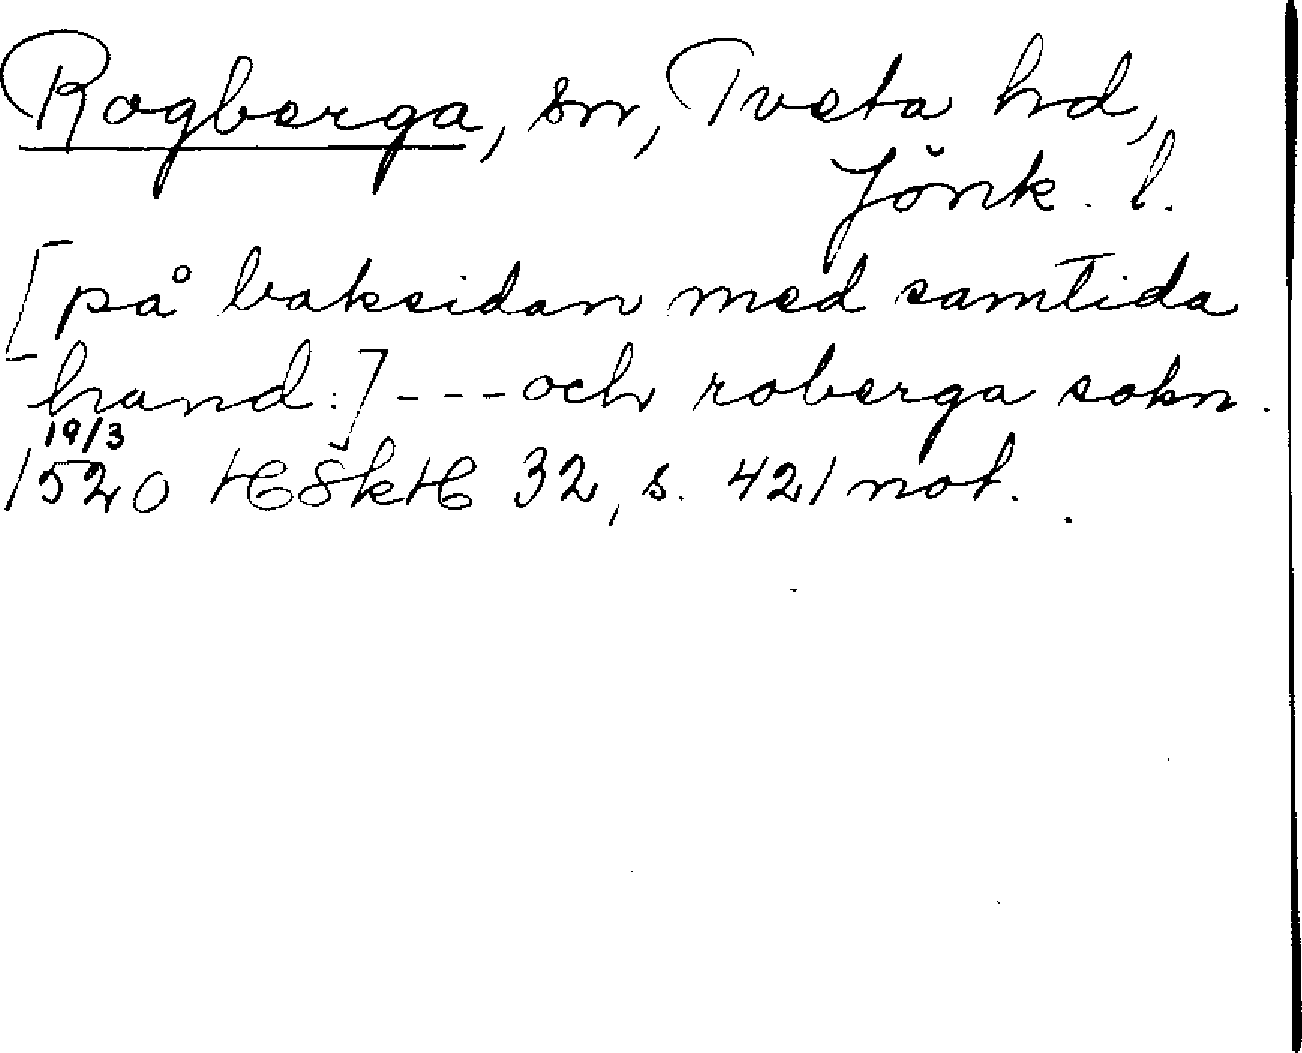 Rogberga, sn, Tveta hd,
Jönk. l.
[på baksidan med samtida
hand:] --- och roberga sokn.
19/3
1520 HSkH 32, s. 421 not.